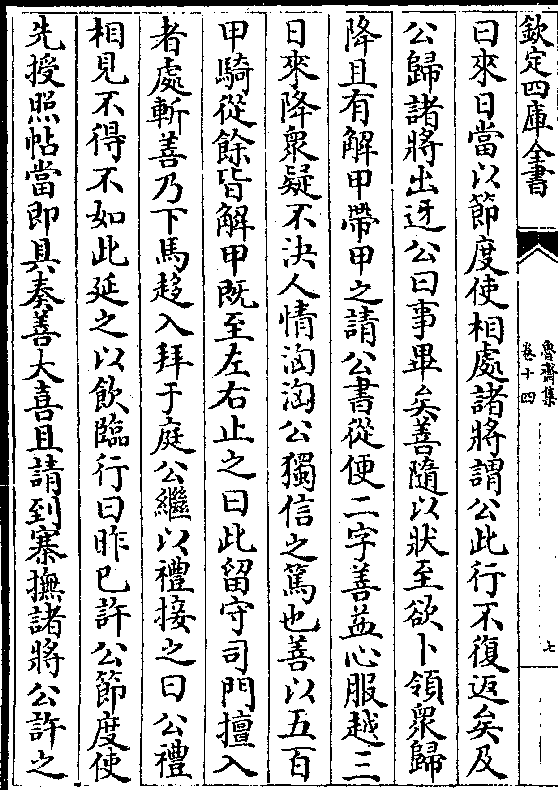 欽定四庫全書
魯齋集
卷十四
七
曰來日當以節度使相處諸將謂公此行不復返矣及
公歸諸將出迓公曰事畢矣善隨以狀至欲卜領衆歸
降且有解甲帶甲之請公書從便二字善益心服越三
日來降衆疑不決人情洶洶公獨信之篤也善以五百
甲騎從餘皆解甲既至左右止之曰此留守司門擅入
者處斬善乃下馬趍入拜于庭公繼以禮接之曰公禮
相見不得不如此延之以飲臨行曰昨已許公節度使
先授照帖當即具奏善大喜且請到寨撫諸將公許之